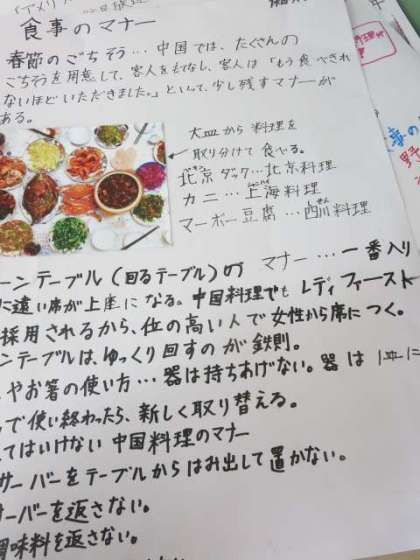 食事のマナー
春節のごちそう…中国では、たくさんの
ごちそうを用意して、客人をもてなし、客人は「もう食べきれ
ないほどいただきました。」といって、少し残すマナーが
ある。
大皿から料理を
取り分けて食べる。
北京ダック…北京料理
カニ…上海料理
マーボー豆腐…四川料理
ーンテーブル(回るテーブル)のマナー…一番入り
に遠い席が上座になる。中国料理でもレディファースト
採用されるから、位の高い人で女性から席につく。
ンテーブルは、ゆっくり回すのが鉄則。
やお箸の使い方…器は持ちあげない。器は1皿に
で使い終わったら、新しく取り替える。
てはいけない中国料理のマナー
サーバーをテーブルからはみ出して置かない。
サーバーを返さない。
調味料を返さない。